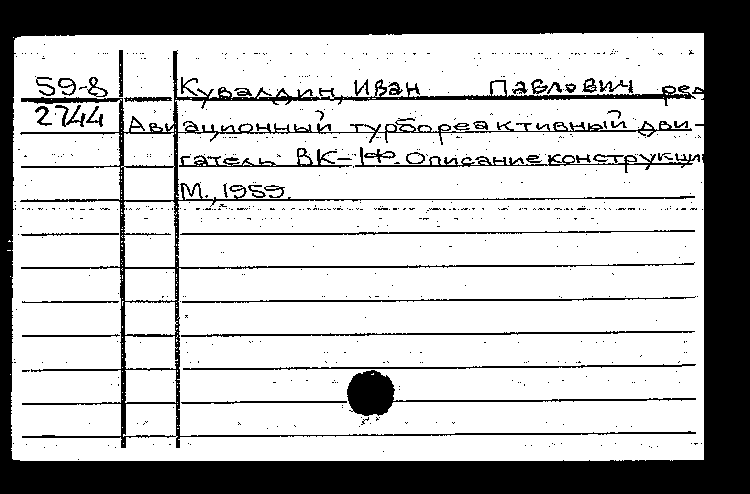 59-8 Кувалдин, Иван Павлович ред
2744 Авиационный турбореактивный дви-
гатель ВК-1Ф. Описание конструкции
М., 1959.